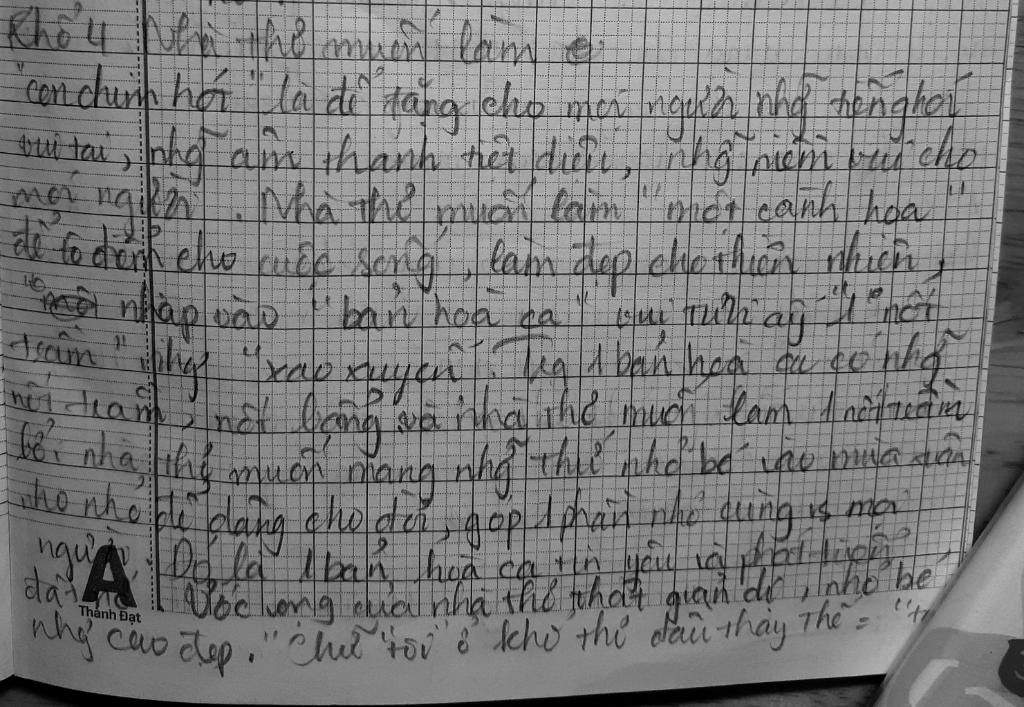 Khổ 4 Nhà thơ muốn làm
"con chim hót" là để tặng cho mọi người nhg~ tiếng hót
vui tai, nhg~ âm thanh tiết điệu, nhg~ niềm vui cho
mọi người. Nhà thơ muốn làm "một cành hoa"
để tô điểm cho cuộc sống, làm đẹp cho thiên nhiên,
nhập vào "bản hoà ca" vui tươi ấy "1 nốt
trầm" nhg "xao xuyến". Trg 1 bản hoà ca có nhg~
nốt trầm, nốt bổng và nhà thơ muốn làm 1 nốt trầm
bởi nhà thơ muốn mang nhg~ thứ nhỏ bé vào mùa xuân
nho nhỏ để dâng cho đời, góp 1 phần nhỏ cùng vs mọi
người. Đó là 1 bản hoà ca tin yêu và phát triển
đất Ước vọng của nhà thơ thật giản dị, nhỏ bé
A
Thành Đạt
nhg cao đẹp. "Chữ "tôi" ở khổ thơ đầu thay thế = "t